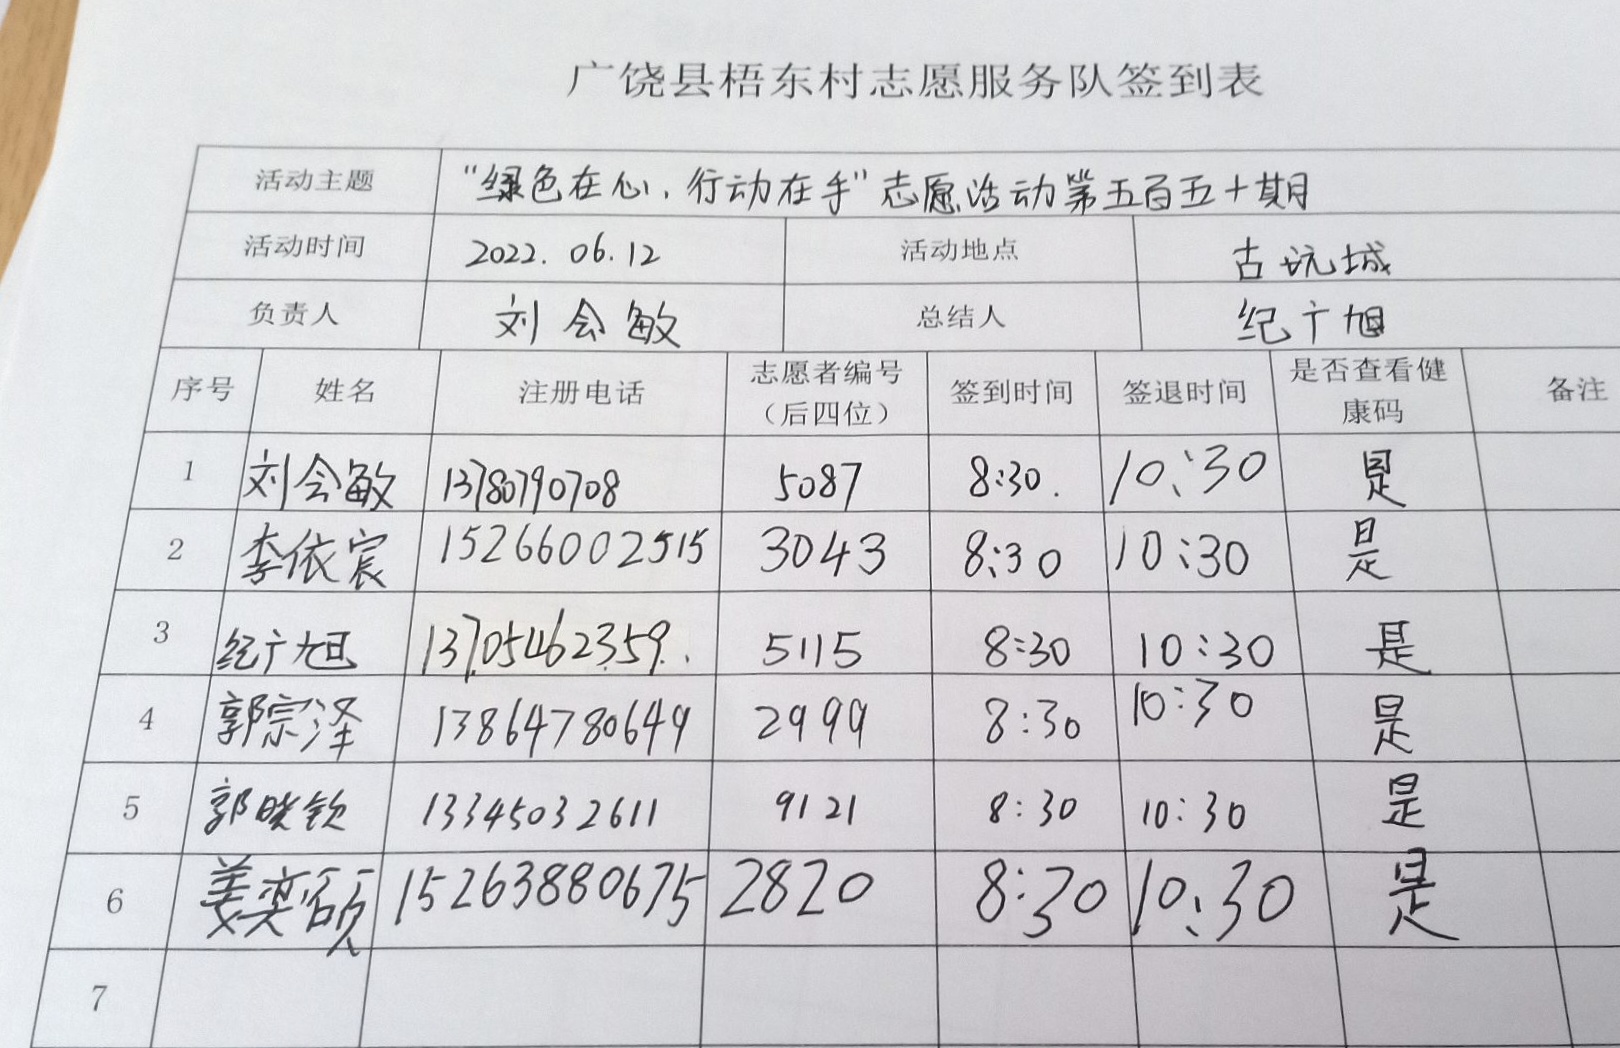 广饶县梧东村志愿服务队签到表
活动主题 “绿色在心，行动在手”志愿活动第五百五十期
活动时间 2022.06.12 活动地点 古坑城
负责人 刘会敏 总结人 纪广旭
序号 姓名 注册电话 志愿者编号（后四位） 签到时间 签退时间 是否查看健康码 备注
1 刘会敏 13780790708 5087 8:30. 10:30 是
2 李依宸 15266002515 3043 8:30 10:30 是
3 纪广旭 13705462359 5115 8:30 10:30 是
4 郭宗泽 13864780649 2999 8:30 10:30 是
5 郭晓钦 13345032611 9121 8:30 10:30 是
6 姜奕硕 15263880675 2820 8:30 10:30 是
7